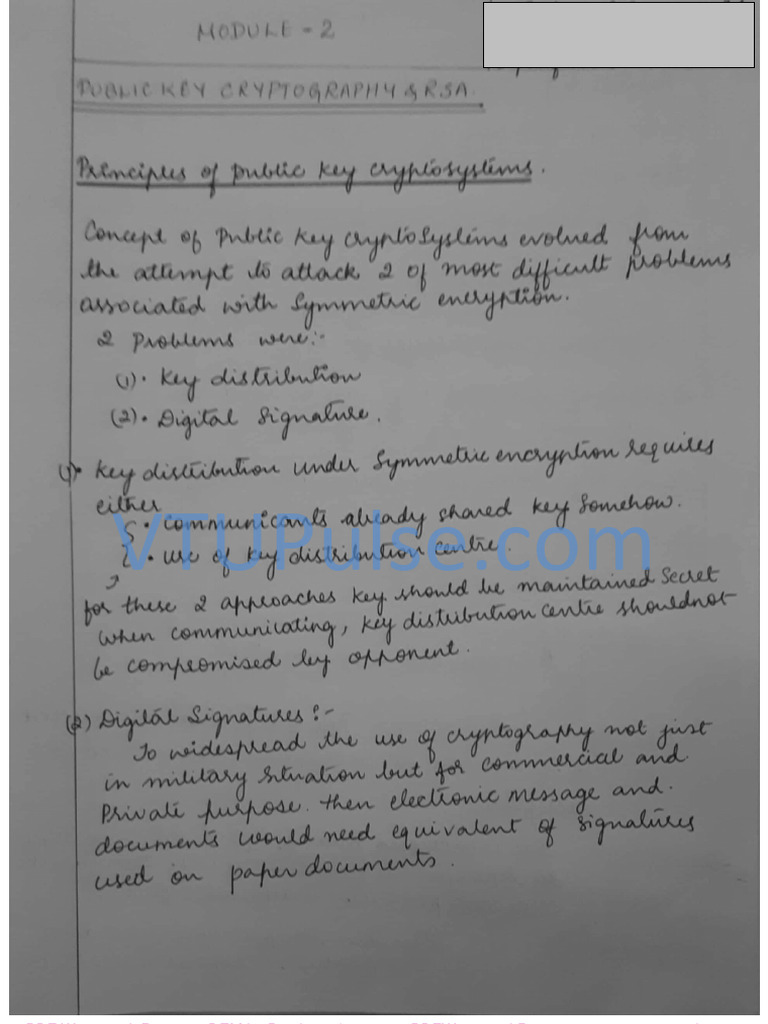 MODULE - 2
PUBLIC KEY CRYPTOGRAPHY & RSA.
Principles of public key cryptosystems.
Concept of Public key cryptosystems evolved from
the attempt to attack 2 of most difficult problems
associated with symmetric encryption.
2 Problems were:-
(1). Key distribution
(2). Digital Signature.
(1). Key distribution under Symmetric encryption requires
either
• communicants already shared key somehow.
• use of key distribution centre.
for these 2 approaches key should be maintained secret
when communicating, key distribution centre shouldnot
be compromised by opponent.
(2) Digital Signatures:-
To widespread the use of cryptography not just
in military situation but for commercial and
Private purpose. then electronic message and
documents would need equivalent of signatures
used on paper documents.
VTUPulse.com